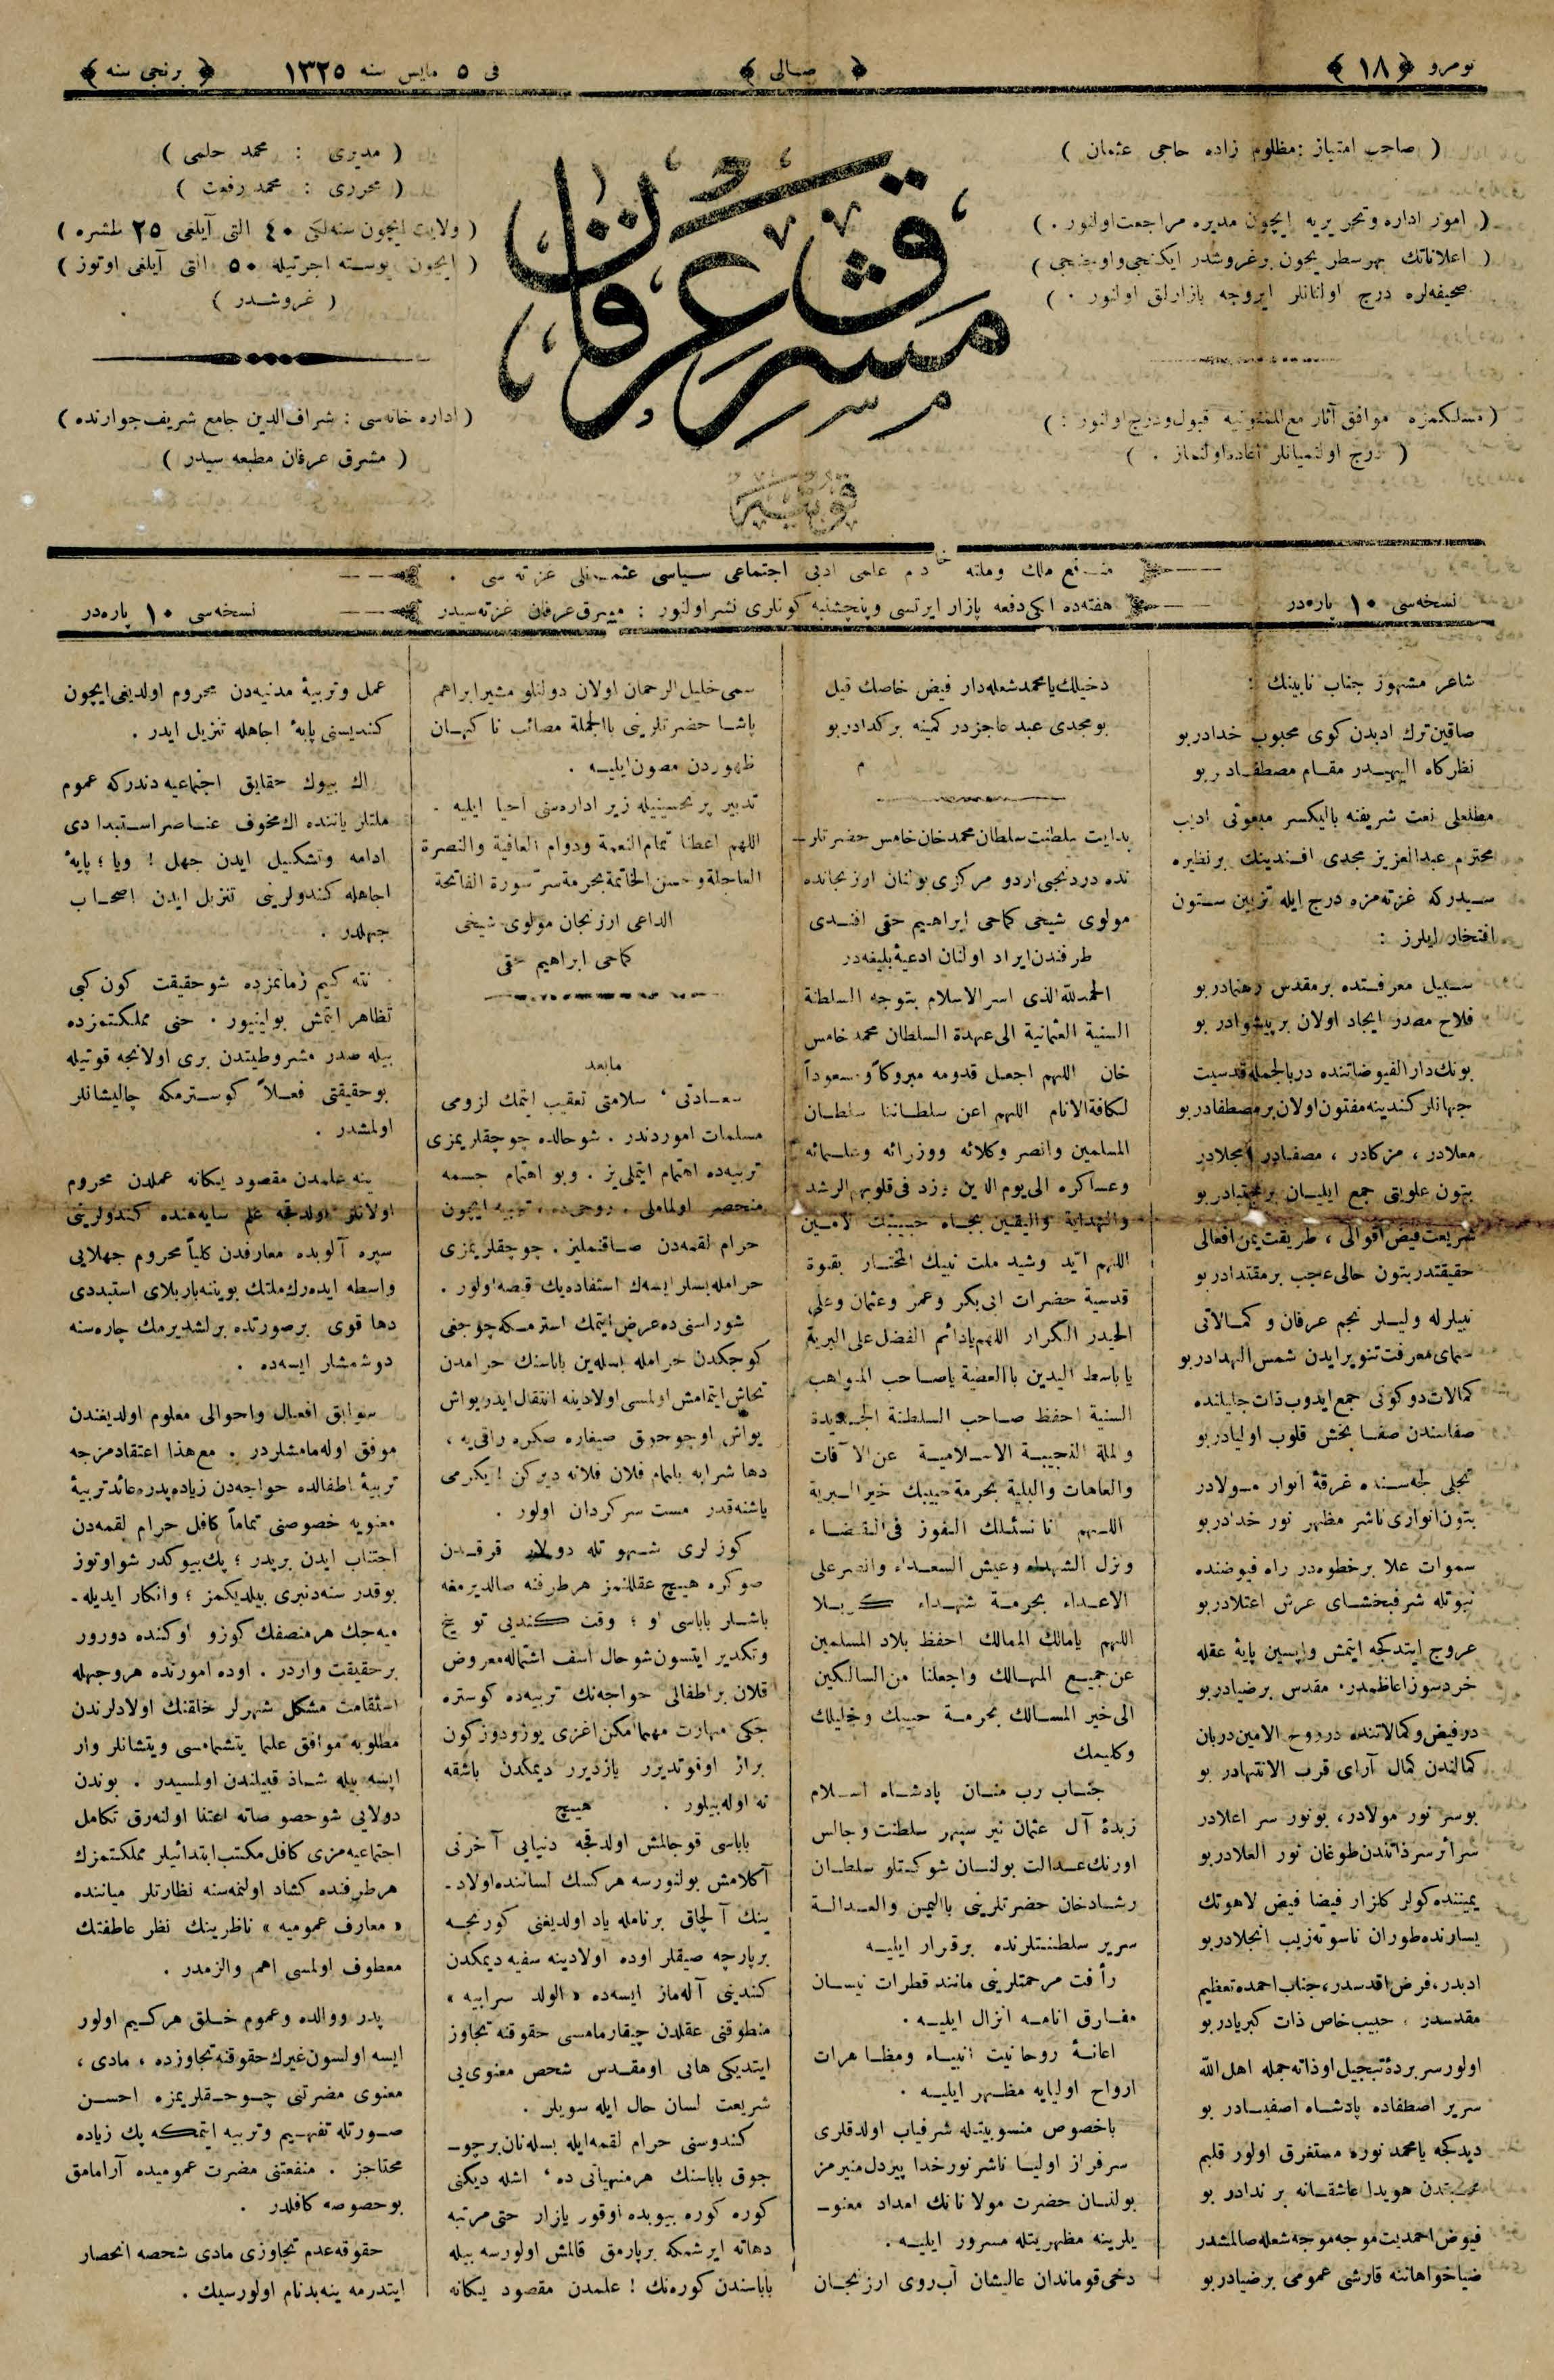 نومرو ﴿ ١٨ ﴾
﴿ صالى ﴾
فى ٥ مايس سنه ١٣٢٥
﴿ برنجى سنه ﴾
( صاحب امتياز : مظلوم زاده حاجى عثمان )
( امور اداره وتحريريه ايچون مديره مراجعت اولنور . )
صحيفه‌لره درج اولنانلر ايروجه بازارلق اولنور . )
( مسلكمزه موافق آثار مع الممنونيه قبول ودرج اولنور : )
( درج اولنميانلر اعاده اولنماز . )
مشرق عرفان
قونيه
( مديرى : محمد حلمى )
( محررى : محمد رفعت )
( ولايت ايچون سنه‌لكى ٤٠ التى آيلغى ٢٥ طشره )
( ايچون پوسته اجرتيله ٥٠ التى آيلغى اوتوز )
( غروشدر )
( اداره خانه‌سى : شراف‌الدين جامع شريف جوارنده )
( مشرق عرفان مطبعه سيدر )
منافع ملك وملته خادم علمى ادبى اجتماعى سياسى عثمانلى غزته سى .
نسخه‌سى ١٠ پاره‌در
هفته‌ده ايكى دفعه پازار ايرتسى وپنجشنبه كونلرى نشر اولنور : مشرق عرفان غزته‌سيدر
نسخه‌سى ١٠ پاره‌در
شاعر مشهور جناب نابينك :
صاقين ترك ادبدن كوى محبوب خدادر بو
نظركاه الهيدر مقام مصطفادر بو
مطلعلى نعت شريفنه باليكسر مبعوثى اديب
محترم عبدالعزيز مجدى افندينك بر نظيره
سيدركه غزته‌مزه درج ايله تزيين ستون
افتخار ايلرز :
سبيل معرفتده بر مقدس رهنمادر بو
فلاح مصدر ايجاد اولان بر پيشوادر بو
بونك دار الفيوضاتنده در بالجمله قدسيت
جهانلر كندينه مفتون اولان بر مصطفادر بو
معلادر ، مزكادر ، مصفادر مجلادر
بتون علويتى جمع ايليان بر مجتبادر بو
شريعت فيض اقوالى ، طريقت يمن افعالى
حقيقتدر بتون حالى عجب بر مقتدادر بو
نبيلرله وليلر نجم عرفان و كمالاتى
سماى معرفت تنوير ايدن شمس الهدادر بو
كمالات دو كونى جمع ايدوب ذات جليلنده
صفاسندن صفا بخش قلوب اوليادر بو
تجلى لجه‌سنده غرقهٔ انوار مولادر
بتون انوارى ناشر مظهر نور خدادر بو
سموات علا بر خطوه‌در راه فيوضنده
نبوتله شرفبخشاى عرش اعتلادر بو
عروج ايتدكجه ايتمش واپسين پايهٔ عقله
خردسوز اعاظمدر ، مقدس بر ضيادر بو
در فيض وكمالاتنده در روح الامين دربان
كمالندن كمال آراى قرب الانتهادر بو
بو سر نور مولادر ، بو نور سر اعلادر
سرائر سر ذاتندن طوغان نور العلادر بو
يميننده كولر كلزار فيضا فيض لاهوتك
يسارنده طوران ناسوته زيب انجلادر بو
ادبدر ، فرض اقدسدر ، جناب احمده تعظيم
مقدسدر ، حبيب خاص ذات كبريادر بو
اولور سر بردهٔ تبجيل اوذاته جمله اهل الله
سرير اصطفاده پادشاه اصفيادر بو
ديدكجه يا محمد نوره مستغرق اولور قلبم
محبتدن هويدا عاشقانه بر ندادر بو
فيوض احمديت موجه موجه شعله صالمشدر
ضيا خواهاننه قارشى عمومى بر ضيادر بو
دخيلك يا محمد شعله‌دار فيض خاصك قيل
بو مجدى عبد عاجزدر كمينه بر كدادر بو
م
بدايت سلطنت سلطان محمد خان خامس حضرتلر-
نده دردنجى اردو مركزى بولنان ارزنجانده
مولوى شيخى كماحى ابراهيم حقى افندى
طرفندن ايراد اولنان ادعيهٔ بليغه‌در
الحمد لله الذى اسر الاسلام بتوجه السلطنة
السنية العثمانية الى عهدة السلطان محمد خامس
خان اللهم اجعل قدومه مبروكاً ومسعوداً
لكافة الانام اللهم اعن سلطاننا سلطان
المسلمين وانصر وكلائه ووزرائه وعلمائه
وعساكره الى يوم الدين وزد فى قلوبهم الرشد
والهداية واليقين بجاه حبيبك الامين
اللهم ايد وشيد ملت نبيك المختار بقوة
قدسية حضرات ابى بكر وعمر وعثمان وعلى
الحيدر الكرار اللهم يا دائم الفضل على البرية
يا باسط اليدين بالعطية يا صاحب المواهب
السنية احفظ صاحب السلطنة الجديدة
والملة النجيبة الاسلامية عن الآفات
والعاهات والبلية بحرمة حبيبك خير البرية
اللهم انا نسئلك الفوز فى القضاء
ونزل الشهداء وعيش السعداء والنصر على
الاعداء بحرمة شهداء كربلا
اللهم يا مالك الممالك احفظ بلاد المسلمين
عن جميع المهالك واجعلنا من السالكين
الى خير المسالك بحرمة حبيبك وخليلك
وكليمك
جناب رب منان پادشاه اسلام
زبدهٔ آل عثمان نير سپهر سلطنت وجالس
اورنك عدالت بولنان شوكتلو سلطان
رشاد خان حضرتلرينى باليمن والعدالة
سرير سلطنتلرنده برقرار ايليه
رأفت مرحمتلرينى مانند قطرات نيسان
مفارق انامه انزال ايليه .
اعانهٔ روحانيت انبياء ومظاهرات
ارواح اوليايه مظهر ايليه .
باخصوص منسوبيتله شرفياب اولدقلرى
سرفراز اوليا ناشر نور خدا پير دل منيرمز
بولنان حضرت مولانانك امداد معنو-
يلرينه مظهريتله مسرور ايليه .
دخى قوماندان عاليشان آب روى ارزنجان
سمى خليل الرحمان اولان دولتلو مشير ابراهيم
پاشا حضرتلرينى بالجملة مصائب ناكهان
ظهوردن مصون ايليه .
تدبير پر تحسينيله زير اداره‌سنى احيا ايليه .
اللهم اعطنا تمام النعمة ودوام العافية والنصرة
العاجلة وحسن الخاتمة بحرمة سر سورة الفاتحة
الداعى ارزنجان مولوى شيخى
كماحى ابراهيم حقى
مابعد
سعادتى ، سلامتى تعقيب ايتمك لزومى
مسلمات اموردندر . شو حالده چوجقلريمزى
تربيه‌ده اهتمام ايتملى‌يز . وبو اهتمام جسمه
منحصر اولماملى . روحى‌ده ، تربيه ايچون
حرام لقمه‌دن صاقنملى‌يز . چوجقلريمزى
حرامله بسلر ايسه‌ك استفاده‌يك قصه اولور .
شوراسنى ده عرض ايتمك استرم‌كه چوجغى
كوجكدن حرامله بسله‌ين باباسنك حرامدن
تحاشى ايتمامش اولمسى اولادينه انتقال ايدر يواش
يواش اوچوجوق صيغاره صكره راقى‌يه ،
دها شرابه بلمام فلان فلانه ديركن ! يكرمى
ياشنه قدر مست سركردان اولور .
صوكره هيچ عقللنمز هر طرفنه صالديرمغه
باشلر باباسى او ؛ وقت كنديى توبيخ
وتكدير ايتسون شو حال اسف اشتماله معروض
قلان بر اطفالى خواجه‌نك تربيه‌ده كوستره
جكى مهارت مهما امكن اغزى يوزو دوزكون
براز اوقوتديرر يازديرر ديمكدن باشقه
نه اوله‌بيلور . هيچ
باباسى قوجالمش اولدقجه دنيايى آخرتى
آكلامش بولنورسه هركسك لسانندە اولاد-
ينك آلچاق برنامله ياد اولديغنى كورنجه
برپارچه صيقلر اوده اولادينه سفيه ديمكدن
كندينى آله‌ماز ايسه‌ده « الولد سر ابيه »
منطوقنى عقلدن چيقارمامسى حقوقنه تجاوز
ايتديكى هانى او مقدس شخص معنوى‌يى
شريعت لسان حال ايله سويلر .
كندوسنى حرام لقمه ايله بسله‌نان بر چو-
جوق باباسنك هر منهياتى ده ، اشله ديكنى
كوره كوره بيوبده اوقور يازار حتى مرتبه
دهاته ايرشمكه برپارمق قالمش اولورسه بيله
باباسندن كوره‌نك ! علمدن مقصود يكانه
عمل وتربيهٔ مدنيه‌دن محروم اولديغى ايچون
كنديسنى پايهٔ اجاهله تنزيل ايدر .
اك بيوك حقايق اجتماعيه دندركه عموم
ملتلر ياننده اك مخوف عناصر استبدادى
ادامه وتشكيل ايدن جهل ! ويا ؛ پايهٔ
اجاهله كندولرينى تنزيل ايدن اصحاب
جهلدر .
نته كيم زمانمزده شو حقيقت كون كبى
تظاهر ايتمش بولنيور . حتى مملكتمزده
بيله صدر مشروطيتدن برى اولانجه قوتيله
بو حقيقتى فعلاً كوسترمكه چاليشانلر
اولمشدر .
ينه علمدن مقصود يكانه عملدن محروم
اولانلر اولدقجه علم سايه‌هنده كندولرينى
سپره آلوبده معارفدن كلياً محروم جهلايى
واسطه ايده‌رك ملتك بويننه بار بلاى استبدادى
دها قوى برصورتده يرلشديرمك چاره‌سنه
دوشمشلر ايسه‌ده .
سوابق افعال واحوالى معلوم اولديغندن
موفق اوله‌مامشلردر . مع هذا اعتقادمزجه
تربيهٔ اطفالده خواجه‌دن زياده پدره عائد تربيهٔ
معنويه خصوصنى تماماً كافل حرام لقمه‌دن
اجتناب ايدن بر پدر ؛ پك بيوكدر شو اوتوز
بو قدر سنه‌دنبرى بيلديكمز ؛ وانكار ايديله-
ميه‌جك هر منصفك كوزو اوكنده دورور
بر حقيقت واردر . اوده امورنده هر وجهله
استقامت مشكل شهرلر خلقنك اولادلرندن
مطلوبه موافق علما يتشمامسى ويتشانلر وار
ايسه بيله شاذ قبيلندن اولمسيدر . بوندن
دولايى شو خصوصاته اعتنا اولنه‌رق تكامل
اجتماعيه‌مزى كافل مكتب ابتدائيلر مملكتمزك
هر طرفنده كشاد اولنمه‌سنه نظارتلر مياننده
« معارف عموميه » ناظرينك نظر عاطفتك
معطوف اولمسى اهم والزمدر .
پدر ووالده وعموم خلق هركيم اولور
ايسه اولسون غيرك حقوقنه تجاوزده ، مادى ،
معنوى مضرتنى چوجقلريمزه احسن
صورتله تفهيم وتربيه ايتمكه پك زياده
محتاجز . منفعتنى مضرت عموميده آرامامق
بو خصوصه كافلدر .
حقوقه عدم تجاوزى مادى شخصه انحصار
ايتدرمه ينه بدنام اولورسيك .